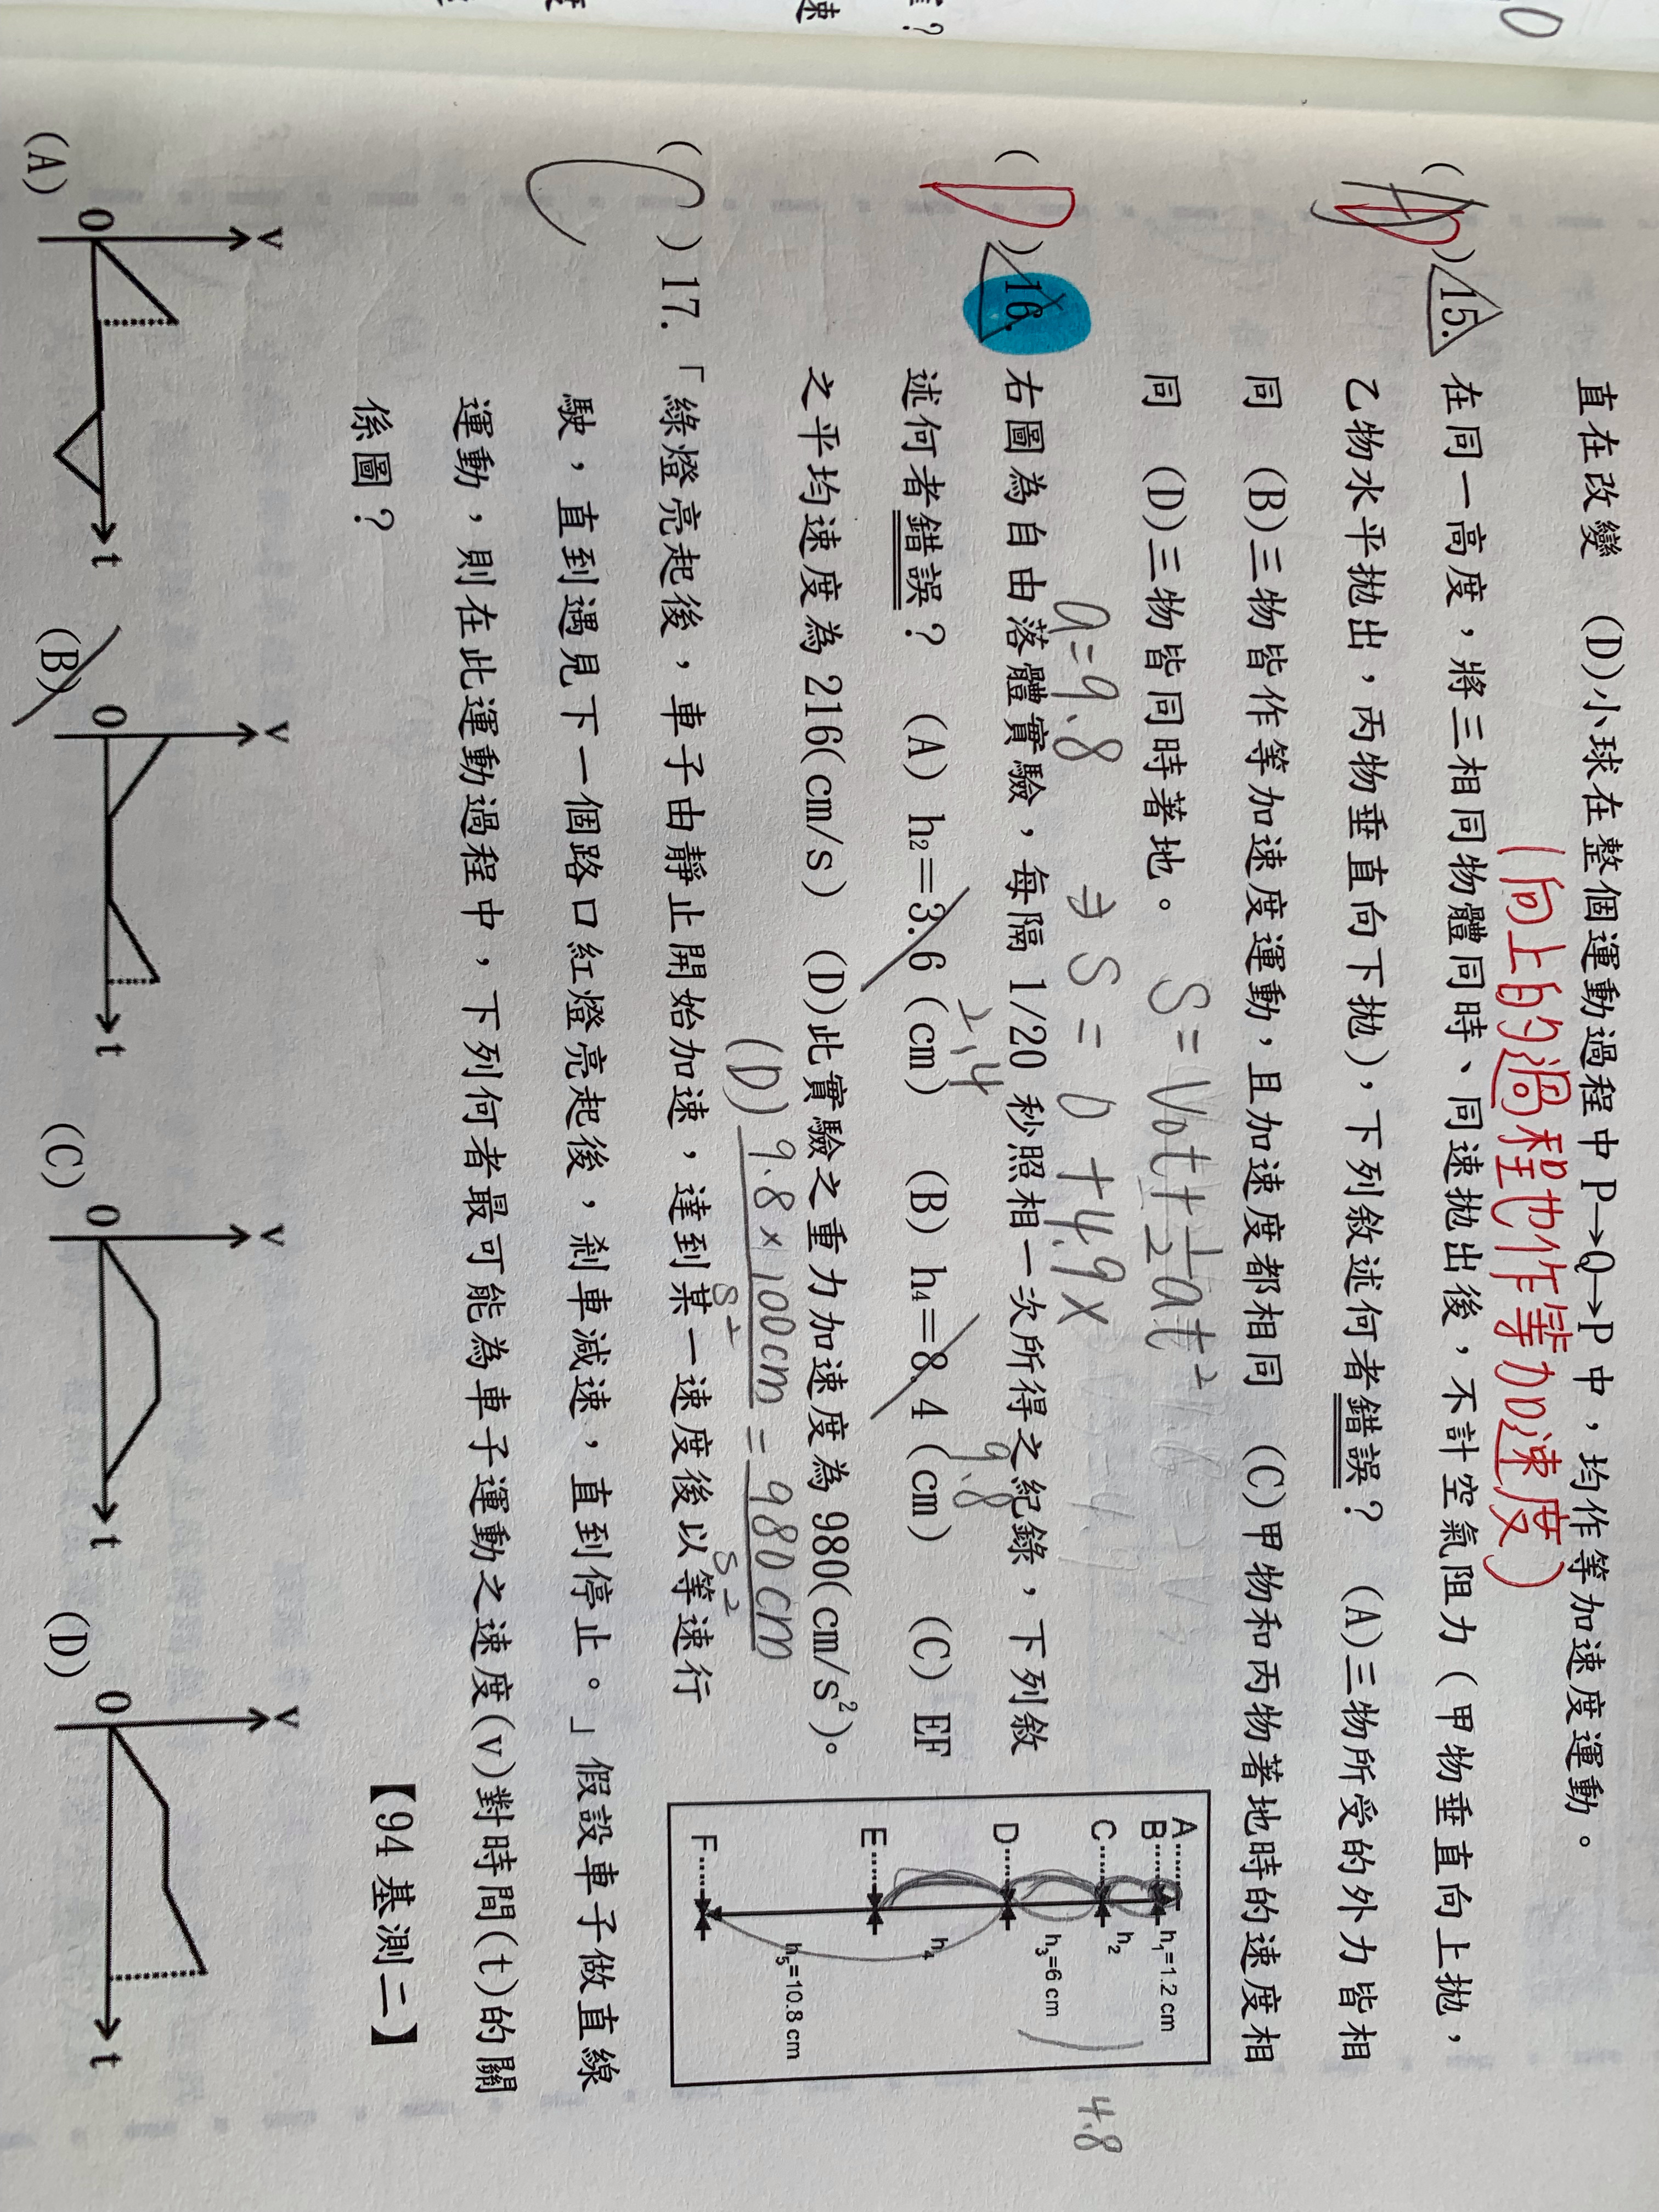 直在改變 (D)小球在整個運動過程中 P→Q→P 中,均作等加速度運動。
(向上的過程也作等加速度)
(D)15. 在同一高度,將三相同物體同時、同速拋出後,不計空氣阻力(甲物垂直向上拋,
乙物水平拋出,丙物垂直向下拋),下列敘述何者錯誤? (A)三物所受的外力皆相
同 (B)三物皆作等加速度運動,且加速度都相同 (C)甲物和丙物著地時的速度相
同 (D)三物皆同時著地。
S=V₀t+½at²
a=9.8 ⇒ S = 0 + 4.9×
(D)16. 右圖為自由落體實驗,每隔 1/20 秒照相一次所得之紀錄,下列敘
述何者錯誤? (A) h₂=3.6 (cm) (B) h₄=8.4 (cm) (C) EF
2.4
9.8
之平均速度為 216(cm/s) (D)此實驗之重力加速度為 980(cm/s²)。
(D) 9.8×100cm/s² = 980cm/s²
A
B h₁=1.2 cm
C h₂
D h₃=6 cm
E h₄
F h₅=10.8 cm
4.8
(C)17.「綠燈亮起後,車子由靜止開始加速,達到某一速度後以等速行
駛,直到遇見下一個路口紅燈亮起後,剎車減速,直到停止。」假設車子做直線
運動,則在此運動過程中,下列何者最可能為車子運動之速度(v)對時間(t)的關
係圖?
【94 基測二】
(A) v 0 t (B) v 0 t (C) v 0 t (D) v 0 t